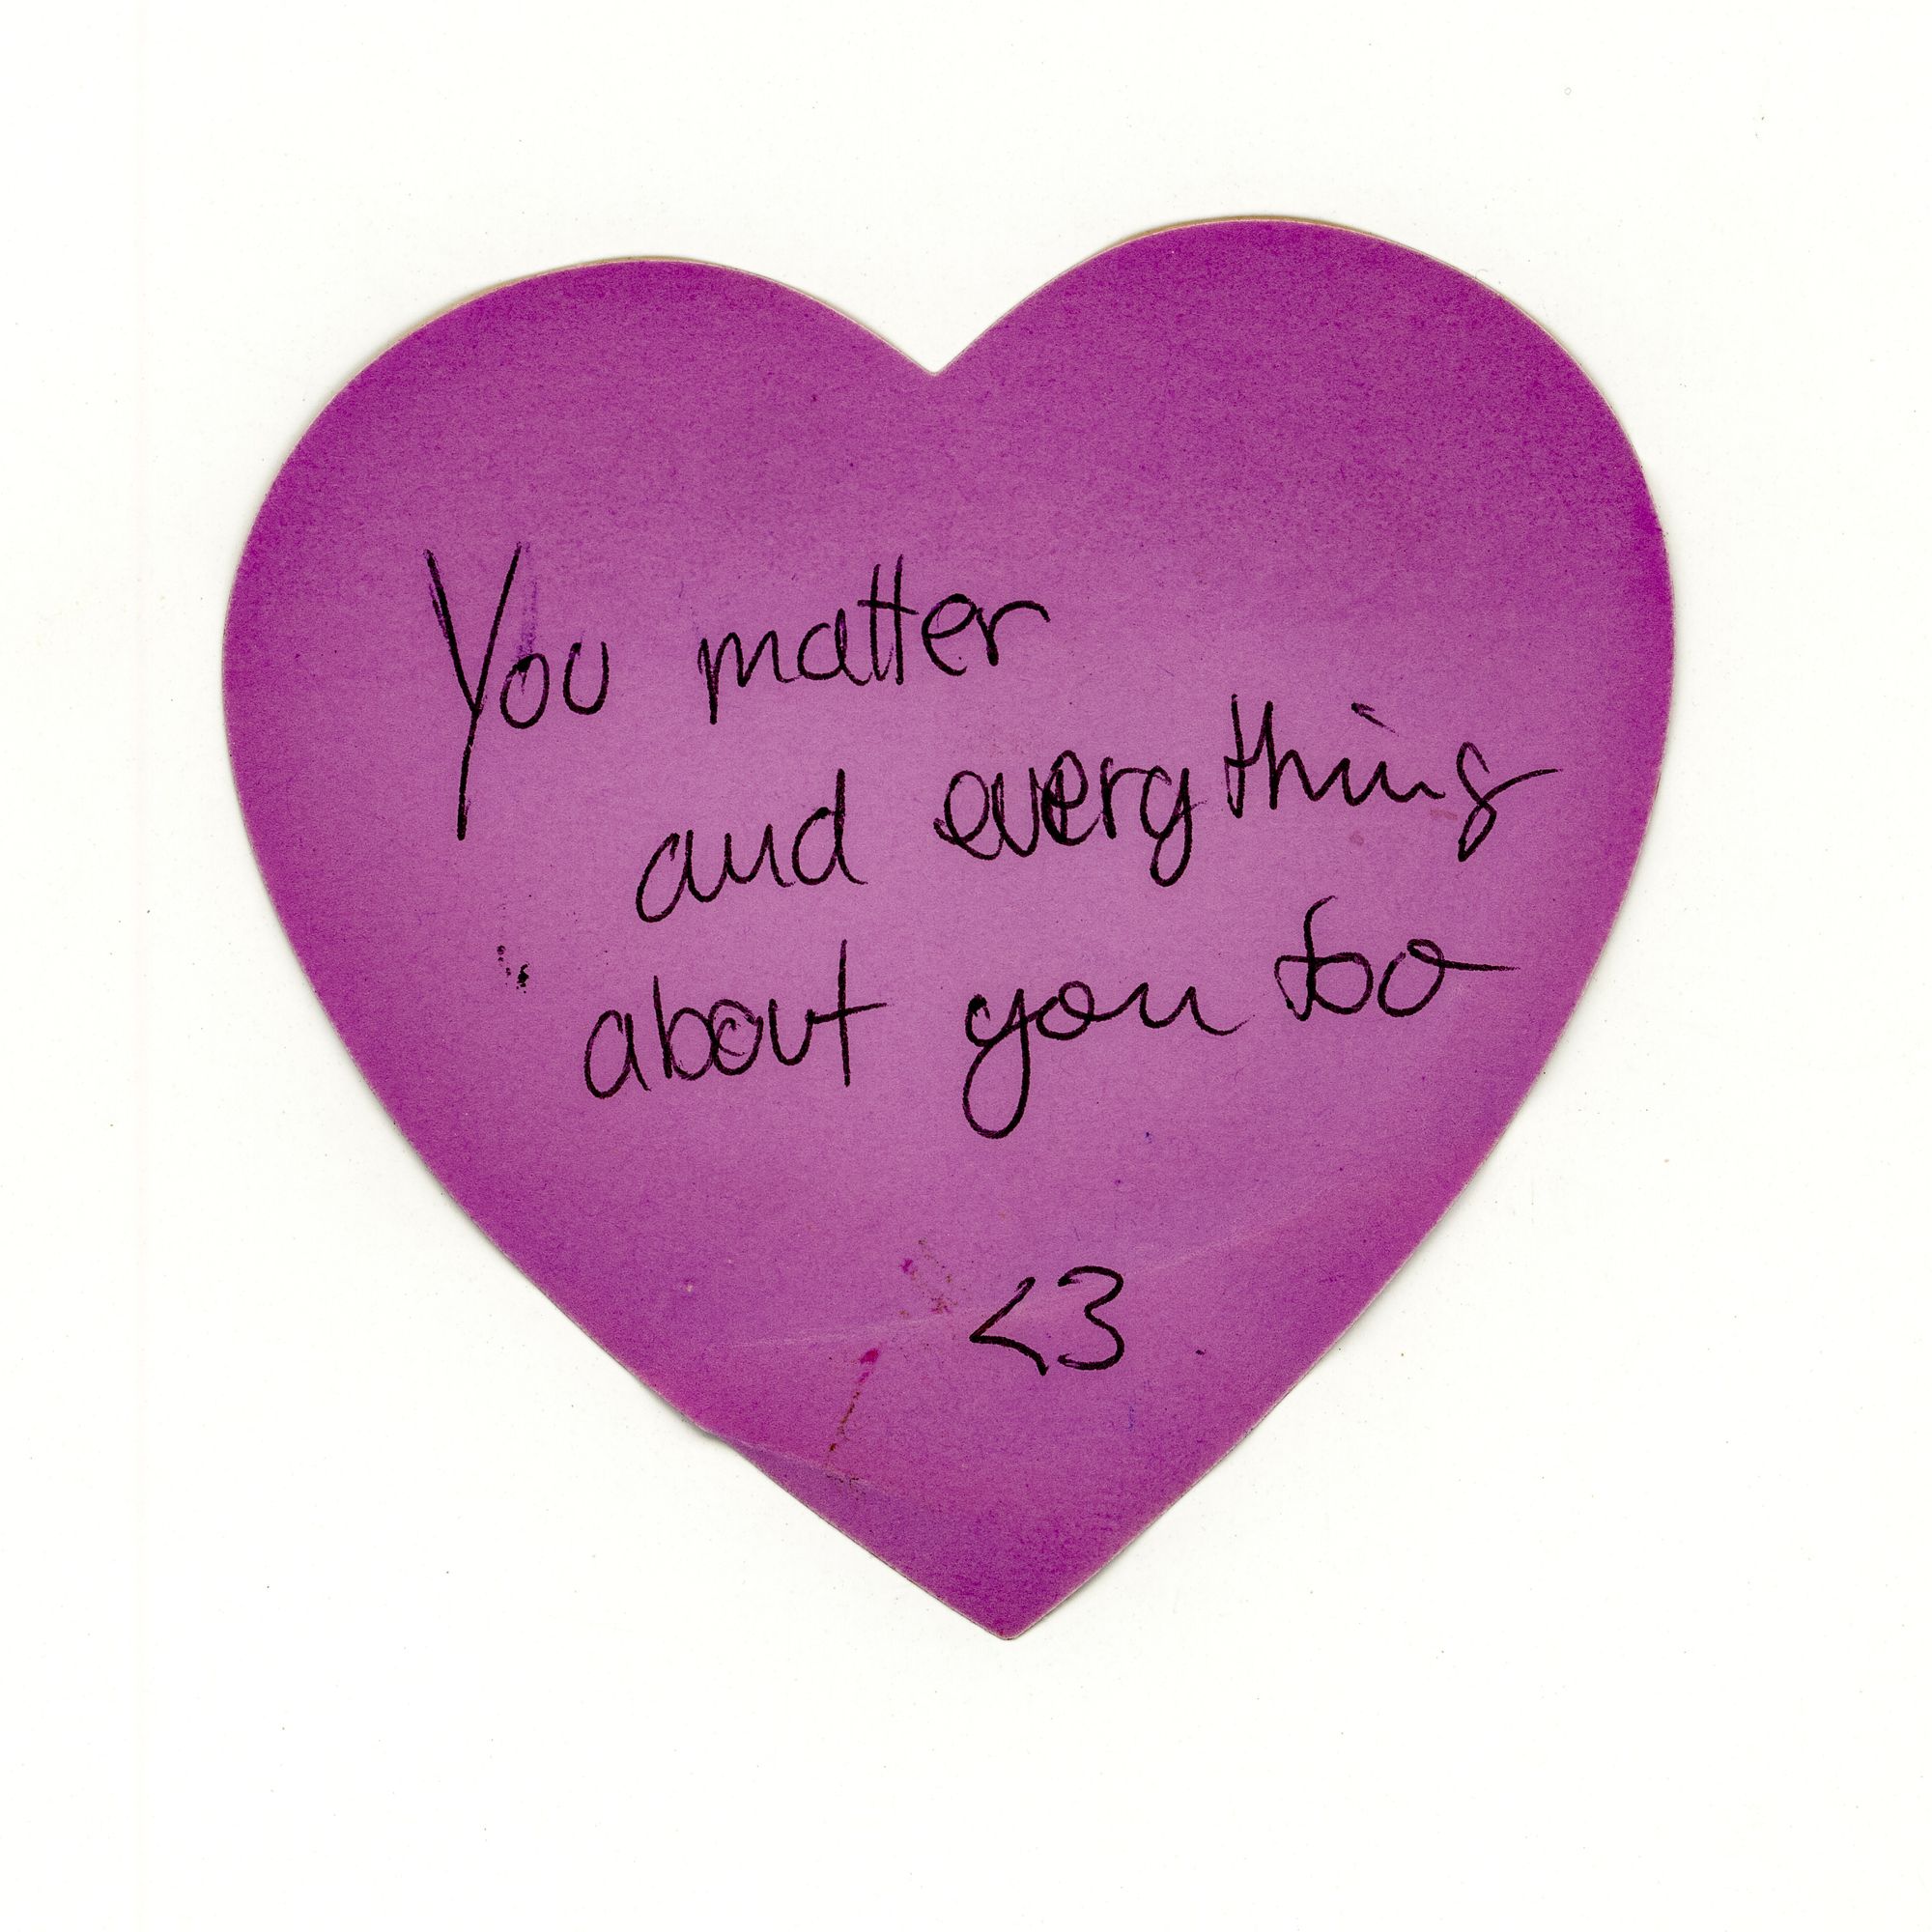 You matter
and everything
about you too
<3